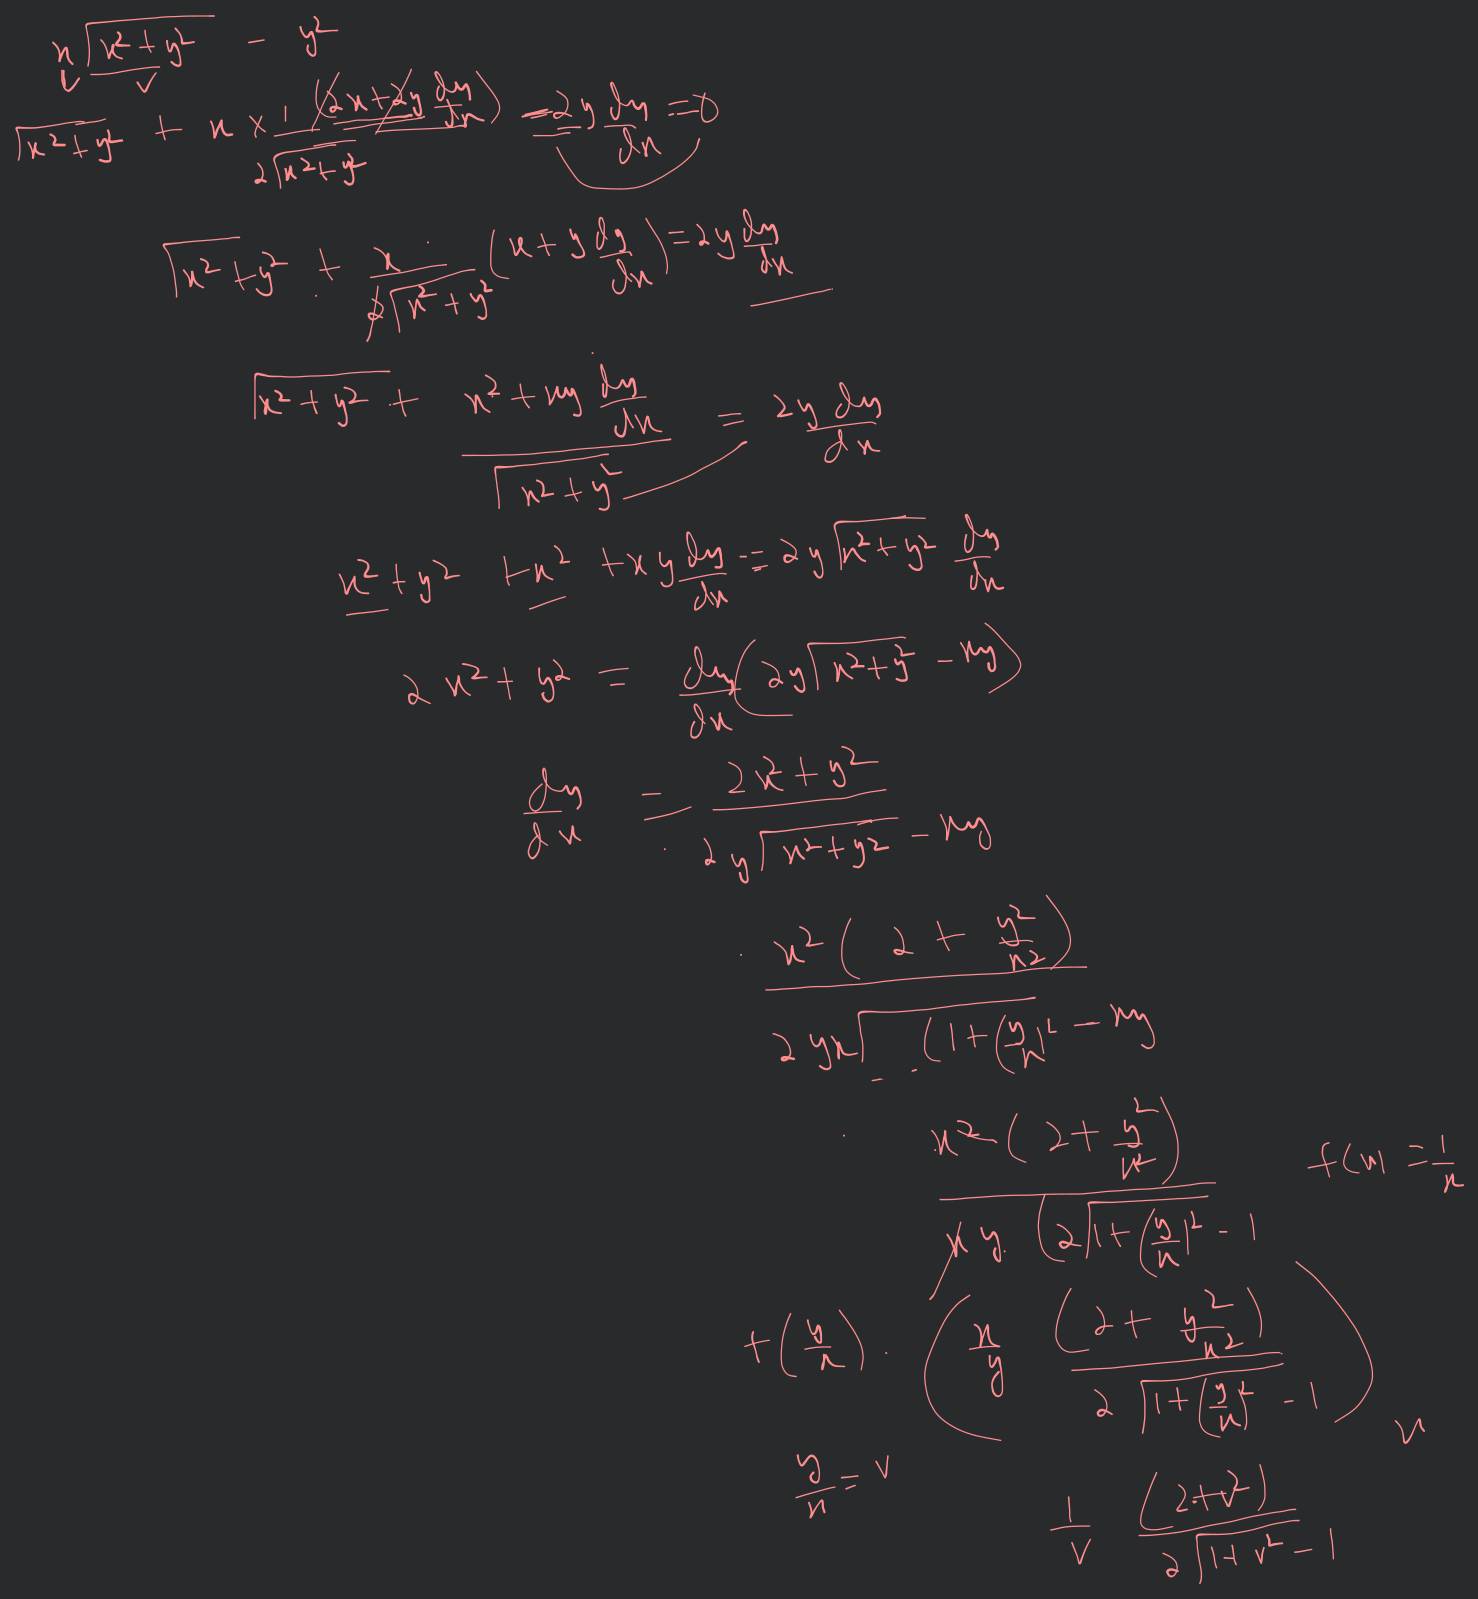 x√(x²+y²) - y²
√(x²+y²) + x × 1/(2√(x²+y²)) (2x+2y dy/dx) - 2y dy/dx = 0
√(x²+y²) + x/(2√(x²+y²)) (x + y dy/dx) = 2y dy/dx
√(x²+y²) + (x²+xy dy/dx)/√(x²+y²) = 2y dy/dx
x²+y² + x² + xy dy/dx = 2y√(x²+y²) dy/dx
2x²+y² = dy/dx (2y√(x²+y²) - xy)
dy/dx = (2x²+y²)/(2y√(x²+y²) - xy)
x²(2 + y²/x²)/(2yx√(1+(y/x)²) - xy)
x²(2 + y²/x²)/(xy (2√(1+(y/x)²) - 1) f(x) = 1/x
f(y/x). (x/y (2 + y²/x²)/(2√(1+(y/x)²) - 1))
y/x = v
1/v (2+v²)/(2√(1+v²) - 1)